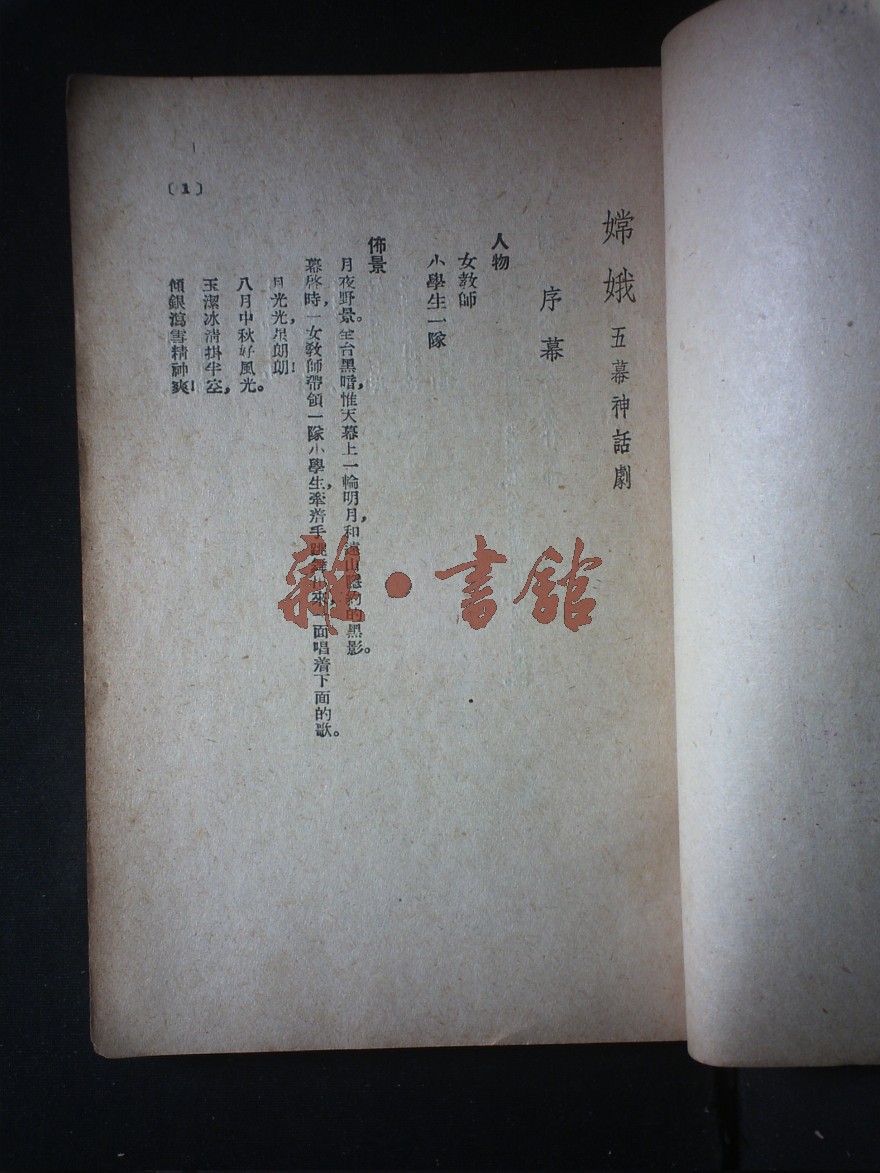 嫦娥 五幕神話劇
序幕
人物
女教師
小學生一隊
佈景
月夜野景。全台黑暗,惟天幕上一輪明月,和遠山隱約的黑影。
幕啓時,一女教師帶領一隊小學生,牽着手跳舞出來,一面唱着下面的歌。
月光光,亮朗朗!
八月中秋好風光。
玉潔冰清掛半空,
傾銀瀉雪精神爽!
〔1〕
雜·書館